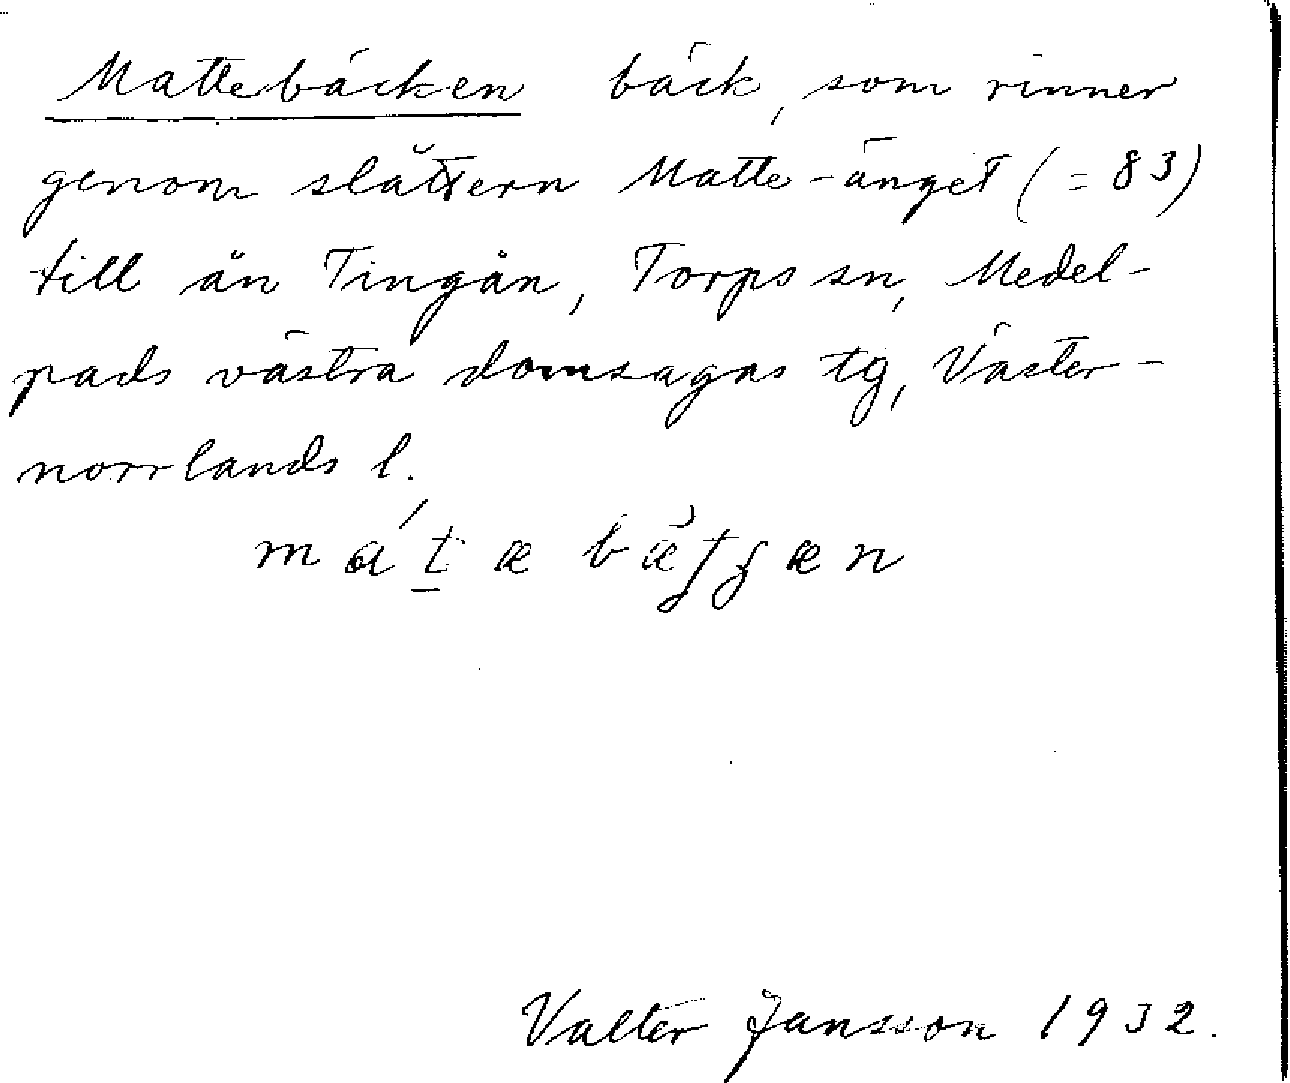 Mattebäcken bäck, som rinner
genom slåttern Matte-änget (= 83)
till ån Tingån, Torps sn, Medel-
pads västra domsagas tg, Väster-
norrlands l.
Valter Jansson 1932.